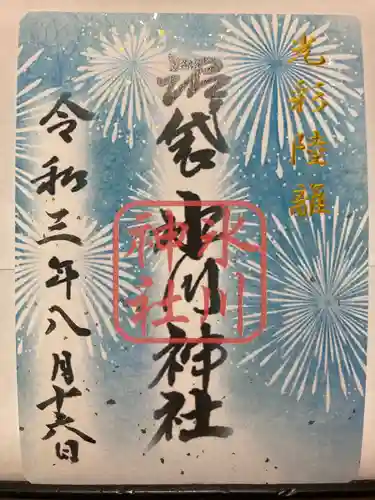 光彩陸離
沼袋氷川神社
氷川
神社
令和三年八月十六日